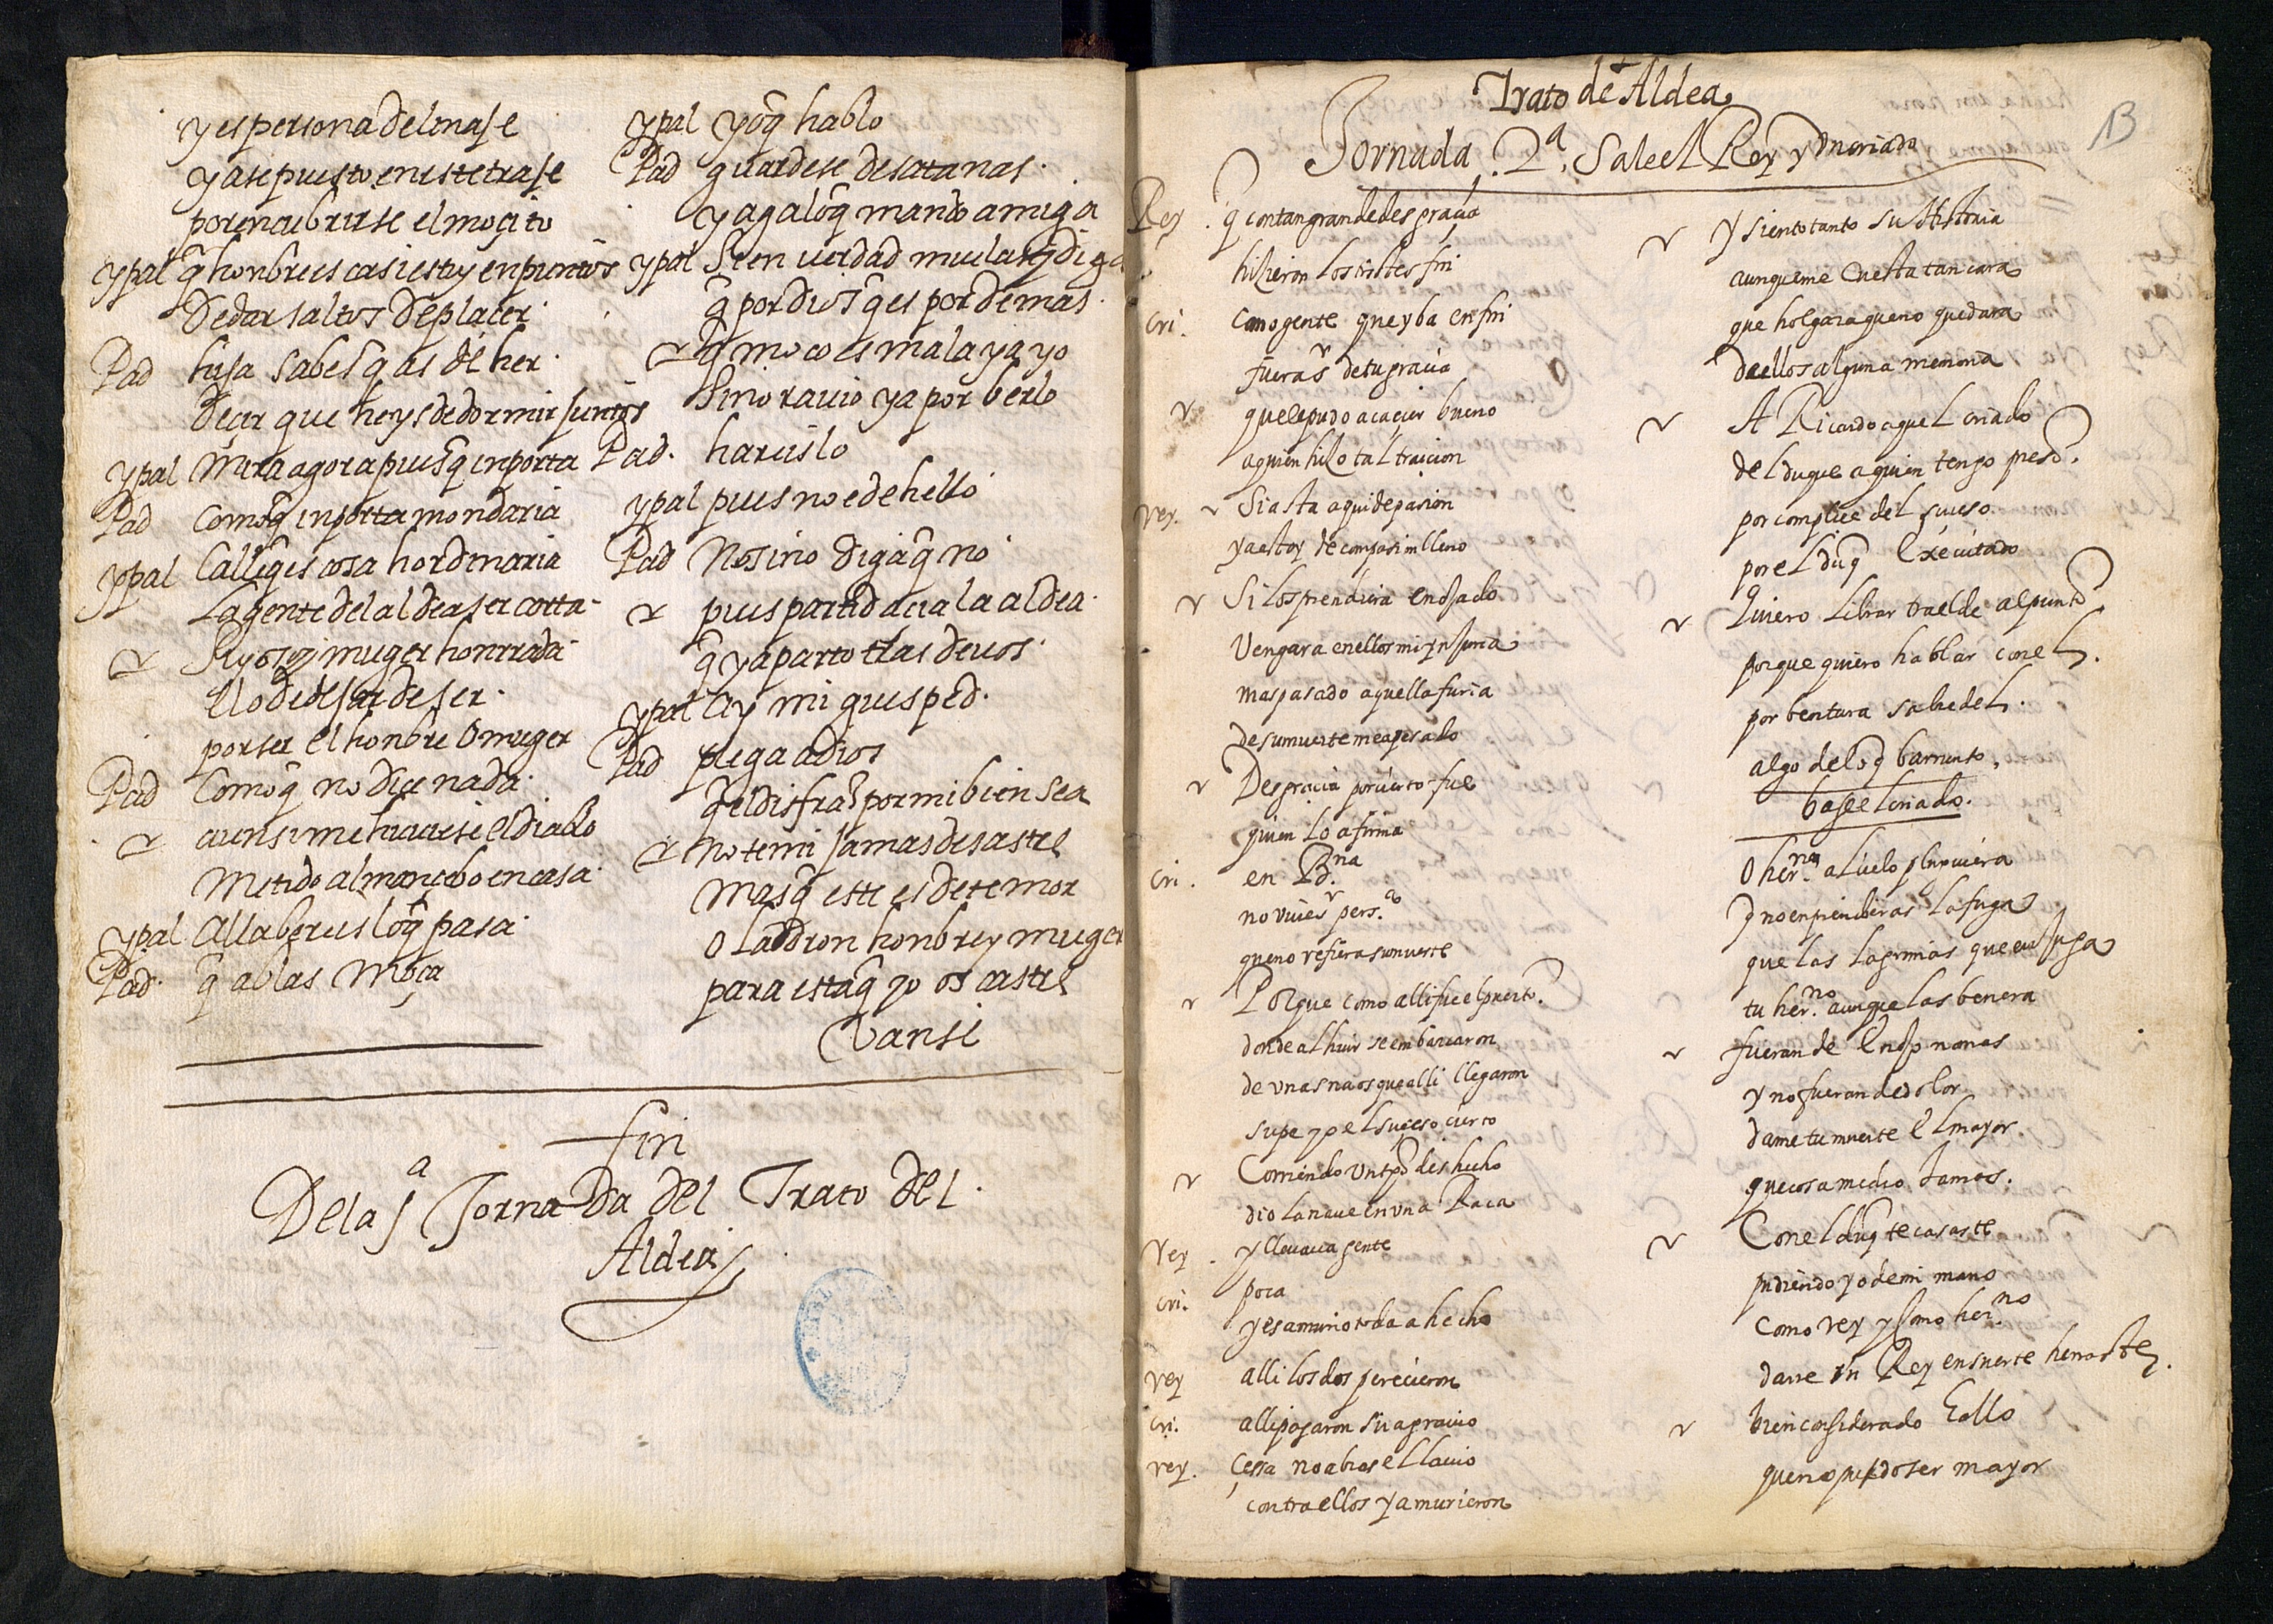 y es persona de linaje
y ase puesto en este traje
por encubrirse el moçito
ypal q̃ honbre es casi estoy en puntos
de dar saltos de plaçer
Pad hija sabes q̃ as de her
deçir que heys de dormir juntos
ypal Mira agora pues q̃ inporta
Pad como q̃ inporta mondaria
ypal Calle q̃ es cosa hordinaria
la gente del aldea ser corta
Si yo soy muger honrrada
e lo de dejar de ser
por ser el honbre o muger
Pad Como q̃ no diçe nada
aun si me huuiese el diablo
Metido al mançebo en casa
ypal Alla bereis lo q̃ pasa
Pad. q̃ ablas Moça
ypal yo q̃ hablo
Pad guardese de satanas
y aga lo q̃ mando amiga
ypal Si en uerdad muela q̃ diga
q̃ por dios q̃ es por demas
q̃ moco es mala ya yo
Sino rauio ya por berlo
Pad. hareislo
ypal pues no e de hello
Pad No sino diga q̃ no
pues partid açia la aldea
q̃ ya parto tras de uos
ypal Ay mi guesped
Pad plega a dios
q̃ el disfraz por mi bien sea
no temi jamas desastre
Mas q̃ este es de temor
o ladron honbre y muger
para esta q̃ yo os castre
Vanse
fin
De la 1ª Jornada del Trato del
Aldea
Trato de Aldea
13
Jornada. 2ª. Sale el Rey y Vn criado
Rey. q̃ con tan grande desgraçia
hiçieron los tristes fin
cri. Como gente que yba en fin
fuera de tu graçia
que le pudo acaeçer bueno
a quien hiço tal traicion
rey. Si asta aqui de pasion
ya estoy de conpasion lleno
Si los prendiera enojado
Vengara en ellos mi ynjuria
mas pasado aquella furia
de su muerte me a pesado
Desgraçia por çierto fue
quien lo afirma
cri. en
no
que no refiera su muerte
Porque como alli fue el puerto
donde al huir se embarcaron
de vnas naos que alli llegaron
supe yo el suçeso çierto
Corriendo Vn tpõ deshecho
dio la naue en vna Roca
rey. y lleuaua gente
cri. poca
y esa murio toda a hecho
rey alli los dos pereçieron
cri. alli pagaron su agrauio
rey. Çessa no abras el llauio
contra ellos ya murieron
Y siento tanto su Historia
aunque me cuesta tan cara
que holgara que no quedara
de ellos alguna memoria
A Ricardo aquel criado
del duque a quien tengo preso
por complice del suçeso
por el duq̃ executado
Quiero librar traelde al punto
porque quiero hablar con el
por bentura sabre del
algo de lo q̃ barrunto
base el criado.
O her.na al çielo pluguiera
Y no enprendieras la fuga
que las lagrimas que enjuga
tu her.no aunque las benera
fueran de
y no fueran de dolor
dame tu muerte el mayor
que cosa me dio jamas.
Con el duq̃ te casaste
pudiendo yo de mi mano
como rey y como her.no
darte vn Rey en suerte herraste
bien considerado hallo
que no pudo ser mayor